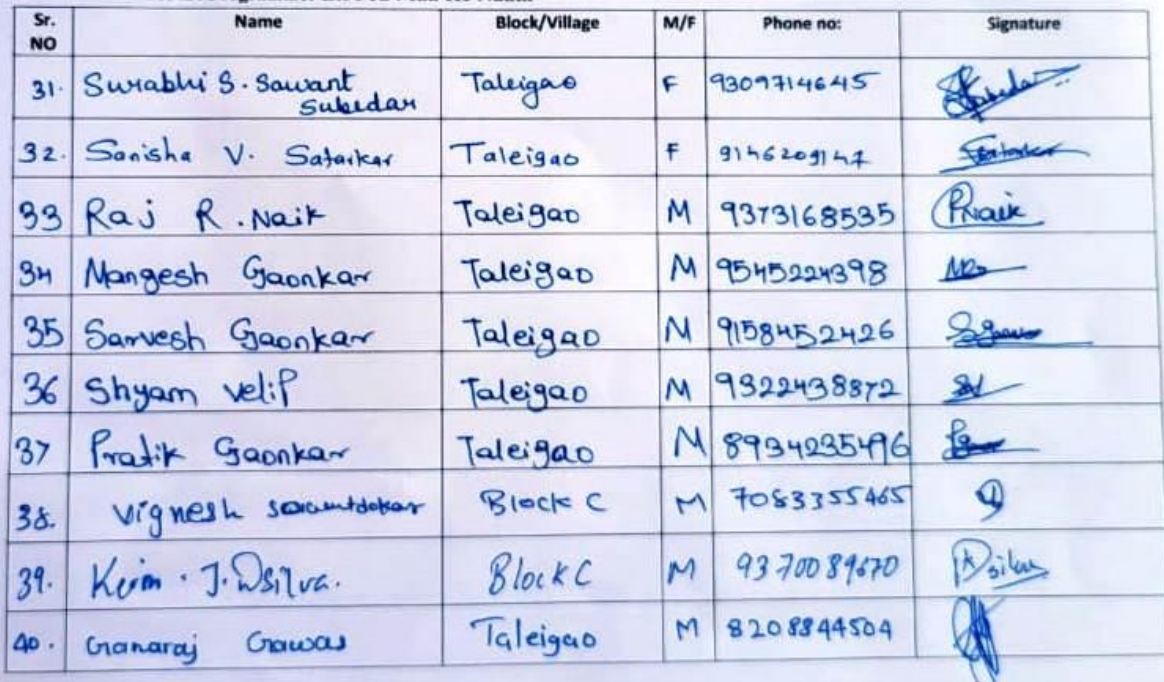 Sr. NO Name Block/Village M/F Phone no: Signature
31. Surabhi S. Sawant Subedar Taleigao F 9309714645
32. Sanisha V. Satarkar Taleigao F 9146209147
33 Raj R. Naik Taleigao M 9373168535 RNaik
34 Mangesh Gaonkar Taleigao M 9545224398
35 Sarvesh Gaonkar Taleigao M 9158452426
36 Shyam Velip Taleigao M 9322438872
37 Pratik Gaonkar Taleigao M 8934235496
38. Vignesh Block C M 7083355465
39. J. Dsilva. Block C M 9370089670
40. Ganaraj Gawas Taleigao M 8208844504